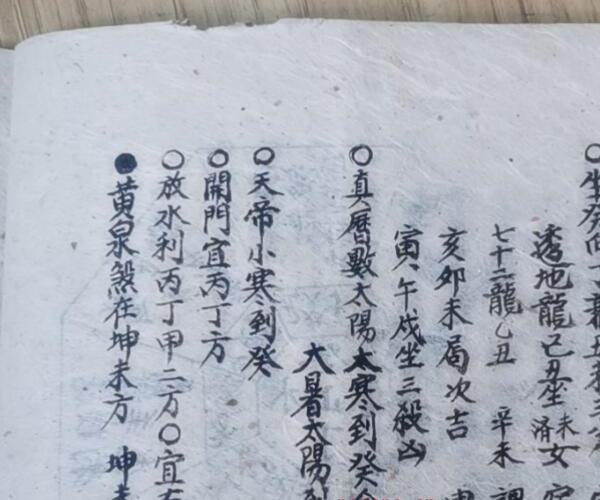 ○生癸向丁兼丑未三
透地龍己丑坐未濟女
七十二龍乙丑 辛未
亥卯未局次吉
寅午戌坐三殺凶
○真曆數太陽大寒到癸
大暑太陽到
○天帝小寒到癸
○開門宜丙丁方
○放水利丙丁甲二方○宜
●黃泉煞在坤未方 坤